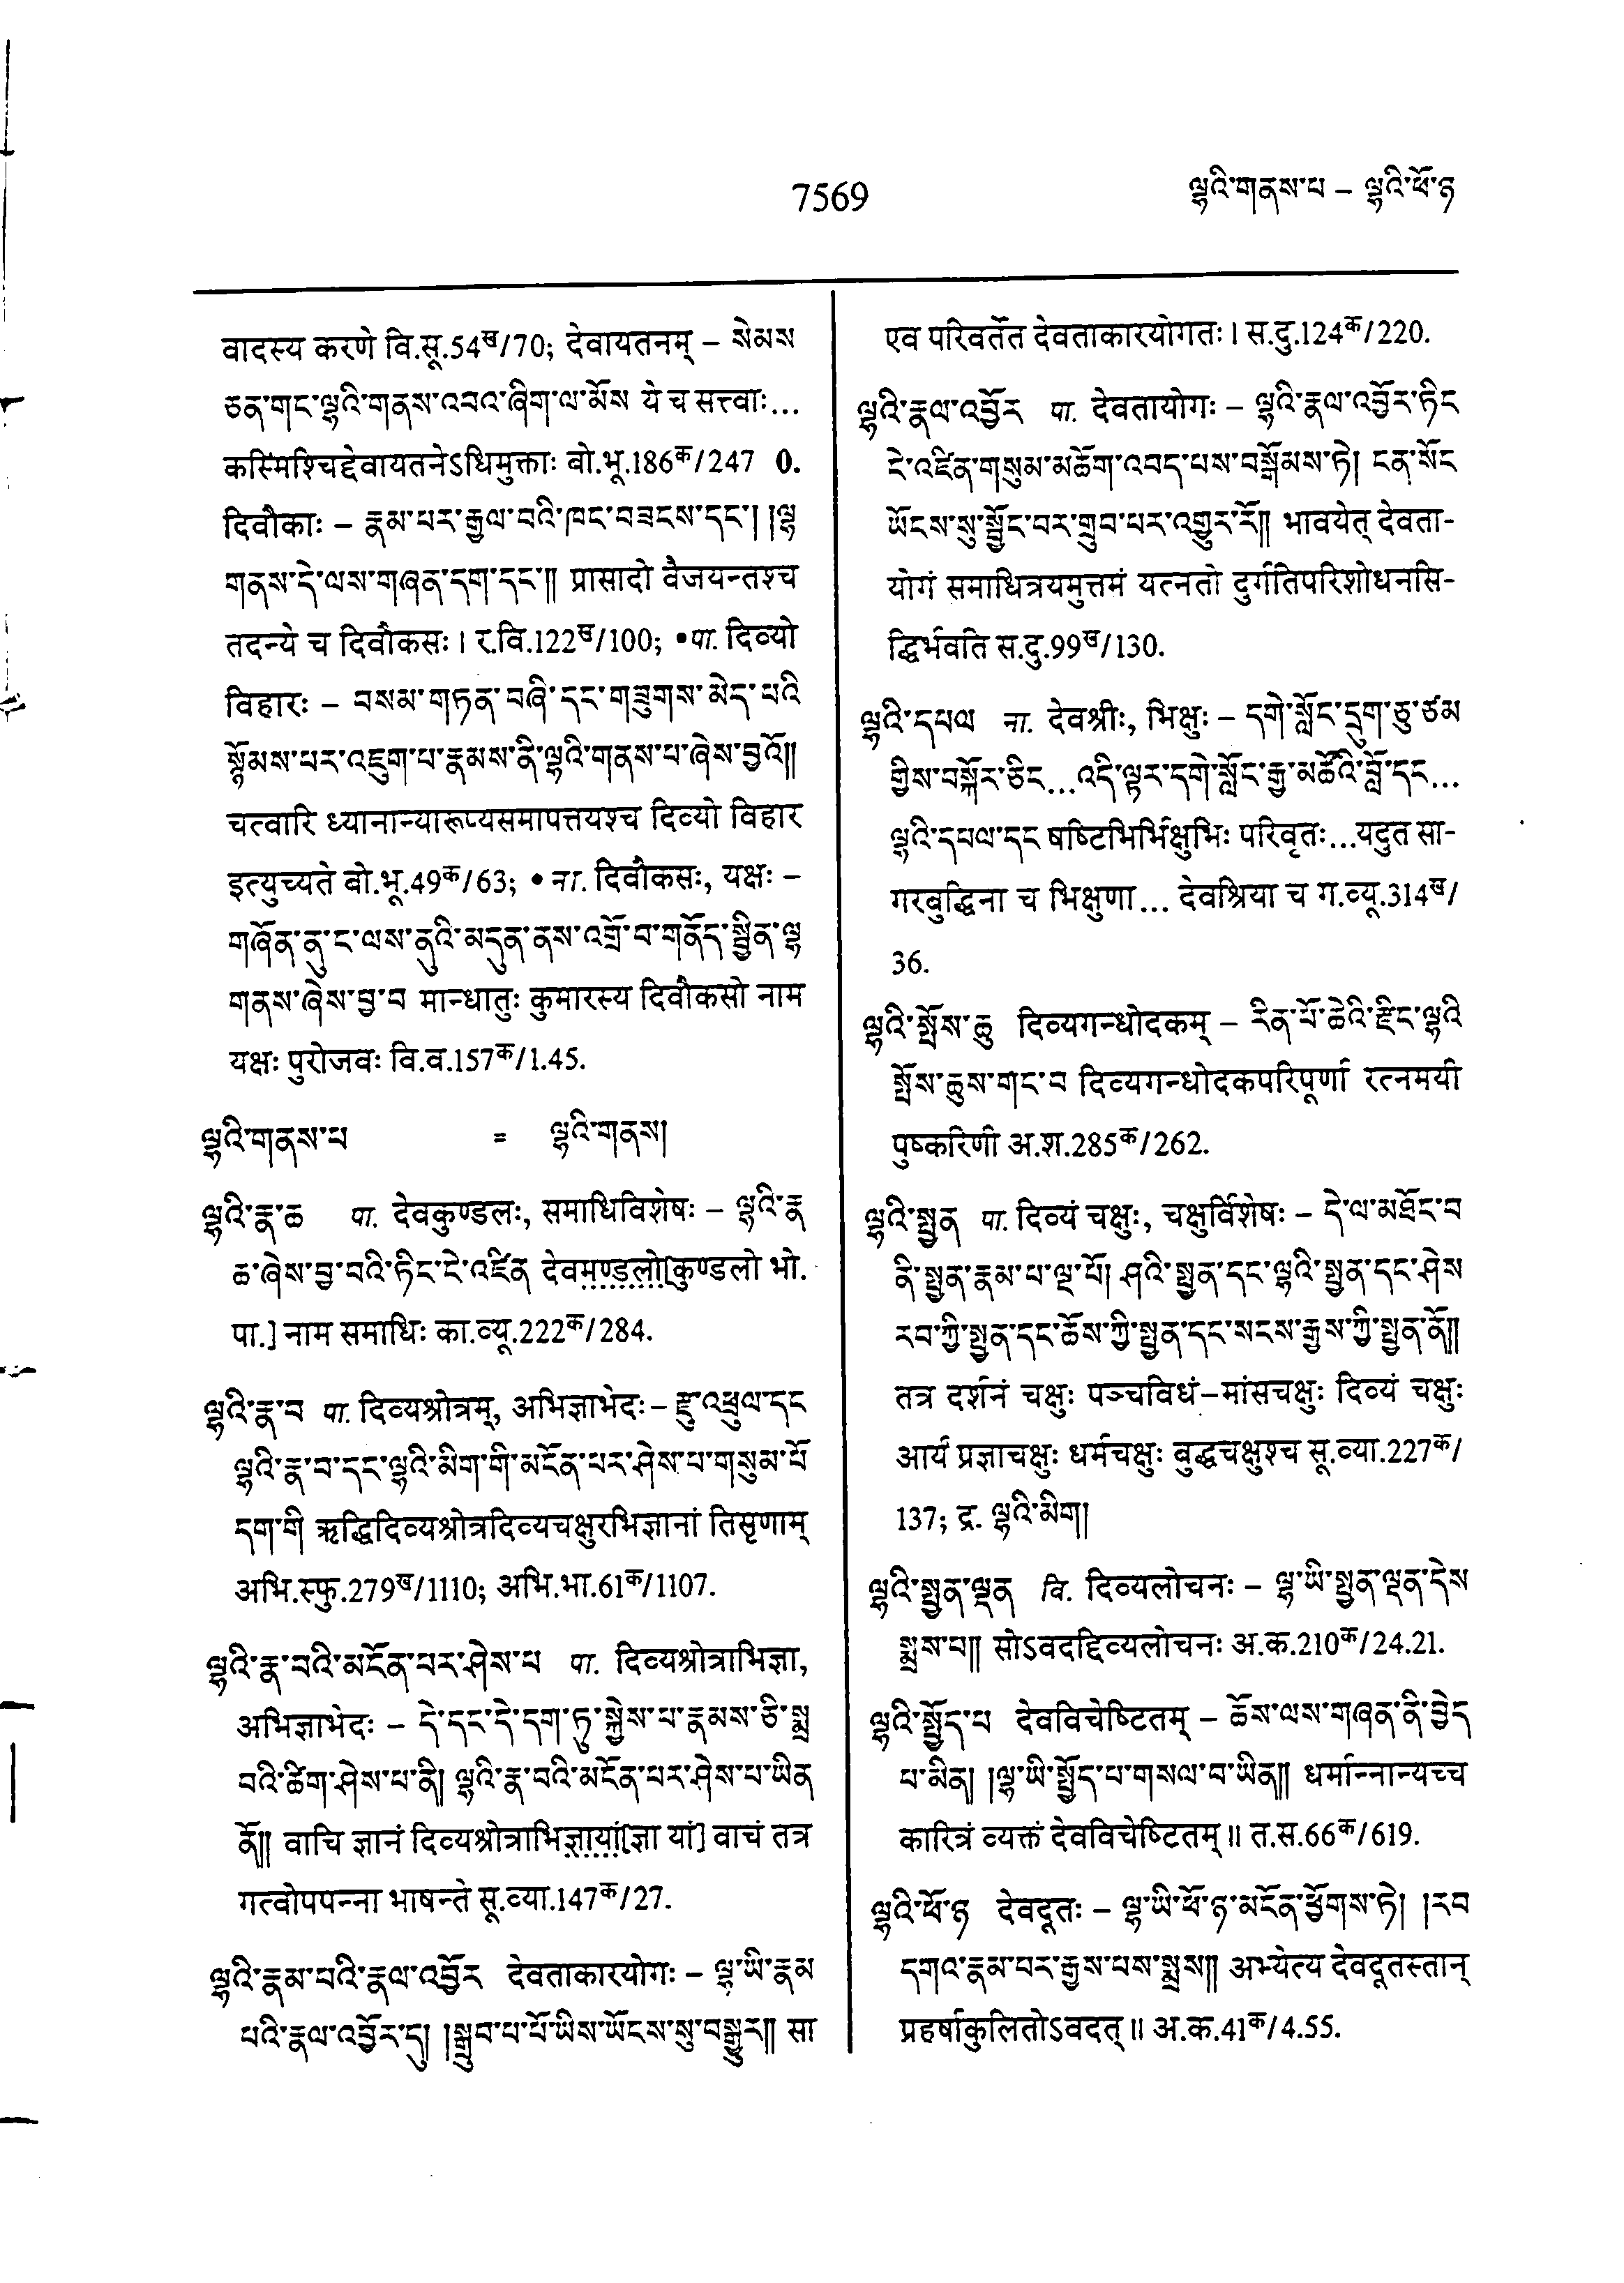 7569
ལྷའི་གནས་པ – ལྷའི་ཕོ་ཉ
वादस्य करणे वि.सू.54ख/70; देवायतनम् – སེམས
ཅན་གང་ལྷའི་གནས་འབའ་ཞིག་ལ་མོས ये च सत्त्वाः...
कस्मिंश्चिद्देवायतनेऽधिमुक्ताः बो.भू.186क/247 0.
दिवौकाः – རྣམ་པར་རྒྱལ་བའི་ཁང་བཟངས་དང་། །ལྷ
གནས་དེ་ལས་གཞན་དག་དང་༎ प्रासादो वैजयन्तश्च
तदन्ये च दिवौकसः। र.वि.122ख/100; •पा. दिव्यो
विहारः – བསམ་གཏན་བཞི་དང་གཟུགས་མེད་པའི
སྙོམས་པར་འཇུག་པ་རྣམས་ནི་ལྷའི་གནས་པ་ཞེས་བྱའོ༎
चत्वारि ध्यानान्यारूप्यसमापत्तयश्च दिव्यो विहार
इत्युच्यते बो.भू.49क/63; • ना. दिवौकसः, यक्षः –
གཞོན་ནུ་ང་ལས་ནུའི་མདུན་ནས་འགྲོ་བ་གནོད་སྦྱིན་ལྷ
གནས་ཞེས་བྱ་བ मान्धातुः कुमारस्य दिवौकसो नाम
यक्षः पुरोजवः वि.व.157क/1.45.
ལྷའི་གནས་པ = ལྷའི་གནས།
ལྷའི་རྣ་ཆ पा. देवकुण्डलः, समाधिविशेषः – ལྷའི་རྣ
ཆ་ཞེས་བྱ་བའི་ཏིང་ངེ་འཛིན देवमण्डलो[कुण्डलो भो.
पा.] नाम समाधिः का.व्यू.222क/284.
ལྷའི་རྣ་བ पा. दिव्यश्रोत्रम्, अभिज्ञाभेदः – རྫུ་འཕྲུལ་དང
ལྷའི་རྣ་བ་དང་ལྷའི་མིག་གི་མངོན་པར་ཤེས་པ་གསུམ་པོ
དག་གི ऋद्धिदिव्यश्रोत्रदिव्यचक्षुरभिज्ञानां तिसृणाम्
अभि.स्फु.279ख/1110; अभि.भा.61क/1107.
ལྷའི་རྣ་བའི་མངོན་པར་ཤེས་པ पा. दिव्यश्रोत्राभिज्ञा,
अभिज्ञाभेदः – དེ་དང་དེ་དག་ཏུ་སྐྱེས་པ་རྣམས་ཅི་སྨྲ
བའི་ཚིག་ཤེས་པ་ནི། ལྷའི་རྣ་བའི་མངོན་པར་ཤེས་པ་ཡིན
ནོ༎ वाचि ज्ञानं दिव्यश्रोत्राभिज्ञायां[ज्ञा यां] वाचं तत्र
गत्वोपपन्ना भाषन्ते सू.व्या.147क/27.
ལྷའི་རྣམ་པའི་རྣལ་འབྱོར देवताकारयोगः – ལྷ་ཡི་རྣམ
པའི་རྣལ་འབྱོར་དུ། །སྒྲུབ་པ་པོ་ཡིས་ཡོངས་སུ་བསྒྱུར༎ सा
एव परिवर्तेत देवताकारयोगतः। स.दु.124क/220.
ལྷའི་རྣལ་འབྱོར पा. देवतायोगः – ལྷའི་རྣལ་འབྱོར་ཏིང
ངེ་འཛིན་གསུམ་མཆོག་འབད་པས་བསྒོམས་ཏེ། ངན་སོང
ཡོངས་སུ་སྦྱོང་བར་གྲུབ་པར་འགྱུར་རོ༎ भावयेत् देवता-
योगं समाधित्रयमुत्तमं यत्नतो दुर्गतिपरिशोधनसि-
द्धिर्भवति स.दु.99ख/130.
ལྷའི་དཔལ ना. देवश्रीः, भिक्षुः – དགེ་སློང་དྲུག་ཅུ་ཙམ
གྱིས་བསྐོར་ཅིང...འདི་ལྟར་དགེ་སློང་རྒྱ་མཚོའི་བློ་དང...
ལྷའི་དཔལ་དང षष्टिभिर्भिक्षुभिः परिवृतः...यदुत सा-
गरबुद्धिना च भिक्षुणा... देवश्रिया च ग.व्यू.314ख/
36.
ལྷའི་སྤོས་ཆུ दिव्यगन्धोदकम् – རིན་པོ་ཆེའི་རྫིང་ལྷའི
སྤོས་ཆུས་གང་བ दिव्यगन्धोदकपरिपूर्णा रत्नमयी
पुष्करिणी अ.श.285क/262.
ལྷའི་སྤྱན पा. दिव्यं चक्षुः, चक्षुर्विशेषः – དེ་ལ་མཐོང་བ
ནི་སྤྱན་རྣམ་པ་ལྔ་པོ། ཤའི་སྤྱན་དང་ལྷའི་སྤྱན་དང་ཤེས
རབ་ཀྱི་སྤྱན་དང་ཆོས་ཀྱི་སྤྱན་དང་སངས་རྒྱས་ཀྱི་སྤྱན་ནོ༎
तत्र दर्शनं चक्षुः पञ्चविधं–मांसचक्षुः दिव्यं चक्षुः
आर्यं प्रज्ञाचक्षुः धर्मचक्षुः बुद्धचक्षुश्च सू.व्या.227क/
137; द्र. ལྷའི་མིག།
ལྷའི་སྤྱན་ལྡན वि. दिव्यलोचनः – ལྷ་ཡི་སྤྱན་ལྡན་དེས
སྨྲས་པ༎ सोऽवदद्दिव्यलोचनः अ.क.210क/24.21.
ལྷའི་སྤྱོད་པ देवविचेष्टितम् – ཆོས་ལས་གཞན་ནི་བྱེད
པ་མིན། །ལྷ་ཡི་སྤྱོད་པ་གསལ་བ་ཡིན༎ धर्मान्नान्यच्च
कारित्रं व्यक्तं देवविचेष्टितम्॥ त.स.66क/619.
ལྷའི་ཕོ་ཉ देवदूतः – ལྷ་ཡི་ཕོ་ཉ་མངོན་ཕྱོགས་ཏེ། །རབ
དགའ་རྣམ་པར་རྒྱས་པས་སྨྲས༎ अभ्येत्य देवदूतस्तान्
प्रहर्षाकुलितोऽवदत्॥ अ.क.41क/4.55.